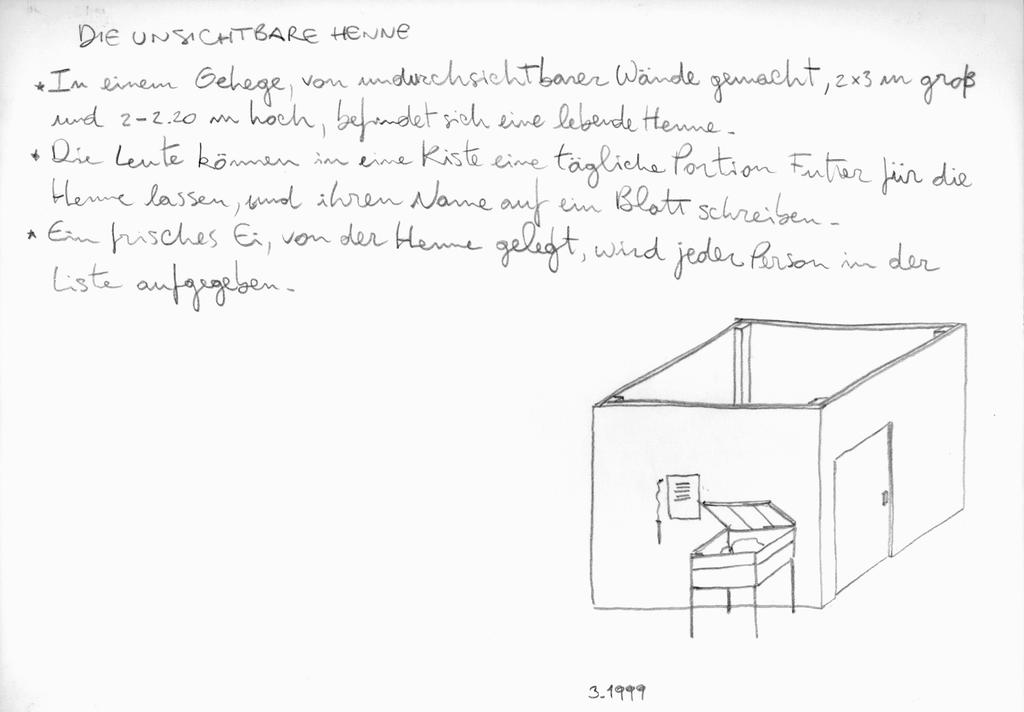 DIE UNSICHTBARE HENNE
* In einem Gehege, von undurchsichtbarer Wände gemacht, 2x3 m groß
und 2-2.20 m hoch, befindet sich eine lebende Henne.
* Die Leute können in eine Kiste eine tägliche Portion Futter für die
Henne lassen, und ihren Name auf ein Blatt schreiben.
* Ein frisches Ei, von der Henne gelegt, wird jeder Person in der
Liste aufgegeben.
3.1999